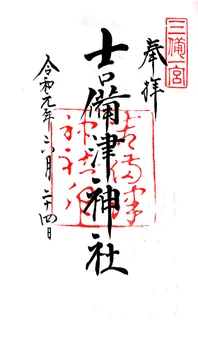 三備一宮
奉拝
吉備津神社
吉備津
神社
令和元年六月二十四日